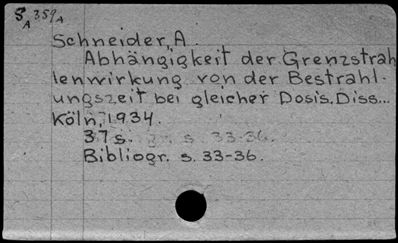 S A 359A
Schneider, A.
Abhängigkeit der Grenzstrah
lenwirkung von der Bestrahl-
ungszeit bei gleicher Dosis. Diss...
Köln, 1934.
37 s. s. 33-36.
Bibliogr. s. 33-36.